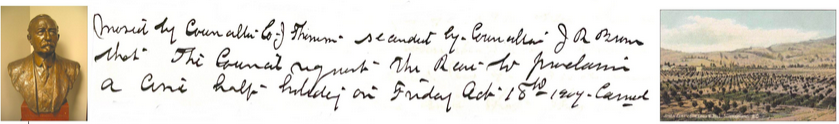 Moved by Councillor C. J. Thomson seconded by Councillor J R Brown
that The Council request The Reeve to proclaim
a Civic half-holiday on Friday Oct 18th 1907 - Carried